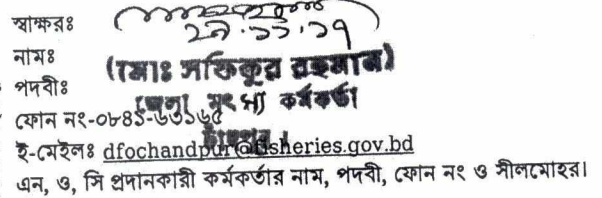 স্বাক্ষরঃ
২৯.১১.১৭
নামঃ (মোঃ সফিকুর রহমান)
পদবীঃ জেলা মৎস্য কর্মকর্তা
ফোন নং-০৮৪১-৬৩১৬৫
চাঁদপুর।
ই-মেইলঃ dfochandpur@fisheries.gov.bd
এন, ও, সি প্রদানকারী কর্মকর্তার নাম, পদবী, ফোন নং ও সীলমোহর।